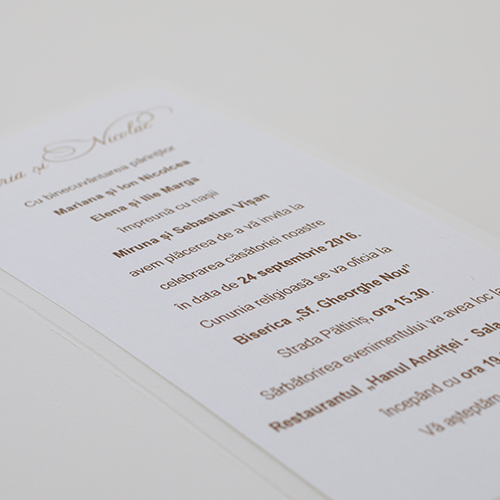 și Nicolae
Cu binecuvântarea părinților
Mariana și Ion Nicolcea
Elena și Ilie Marga
împreună cu nașii
Miruna și Sebastian Vișan
avem plăcerea de a vă invita la
celebrarea căsătoriei noastre
în data de 24 septembrie 2016.
Cununia religioasă se va oficia la
Biserica „Sf. Gheorghe Nou”
Strada Păltiniș, ora 15.30.
Sărbătorirea evenimentului va avea loc la
Restaurantul „Hanul Andriței -
începând cu ora 19.
Vă așteptăm